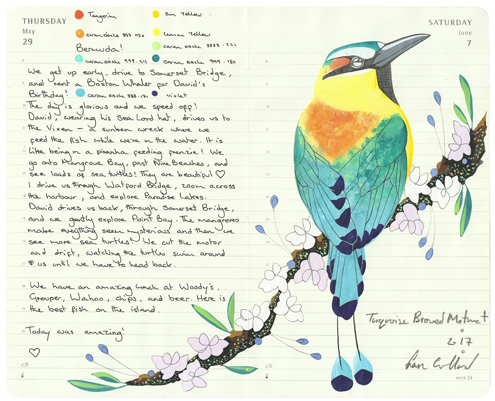 THURSDAY
May
29
Tangerine
Sun Yellow
caran dache 853 .030
Lemon Yellow
Bermuda!
caran dache
caran dache
caran dache
We get up early, drive to Somerset Bridge,
and rent a Boston Whaler for David's
Birthday! caran dache violet
The day is glorious and we speed off!
David, wearing his Sea Lord hat, drives us to
the Vixen - a sunken wreck where we
feed the fish while we're in the water. It is
like being in a piranha feeding frenzie! We
go onto Mangrove Bay, past Nine Beaches, and
see loads of sea turtles! They are beautiful ♡
I drive us through Watford Bridge, zoom across
the harbour, and explore Paradise Lakes.
David drives us back, through Somerset Bridge,
and we gently explore Paint Bay. The mangroves
make everything seem mysterious and then we
see more sea turtles! We cut the motor
and drift, watching the turtles swim around
us until we have to head back.
We have an amazing lunch at Woody's.
Grouper, Wahoo, chips, and beer. Here is
the best fish on the island.
Today was amazing!
♡
SATURDAY
June
7
Turquoise Browed Motmot
2017
week 23